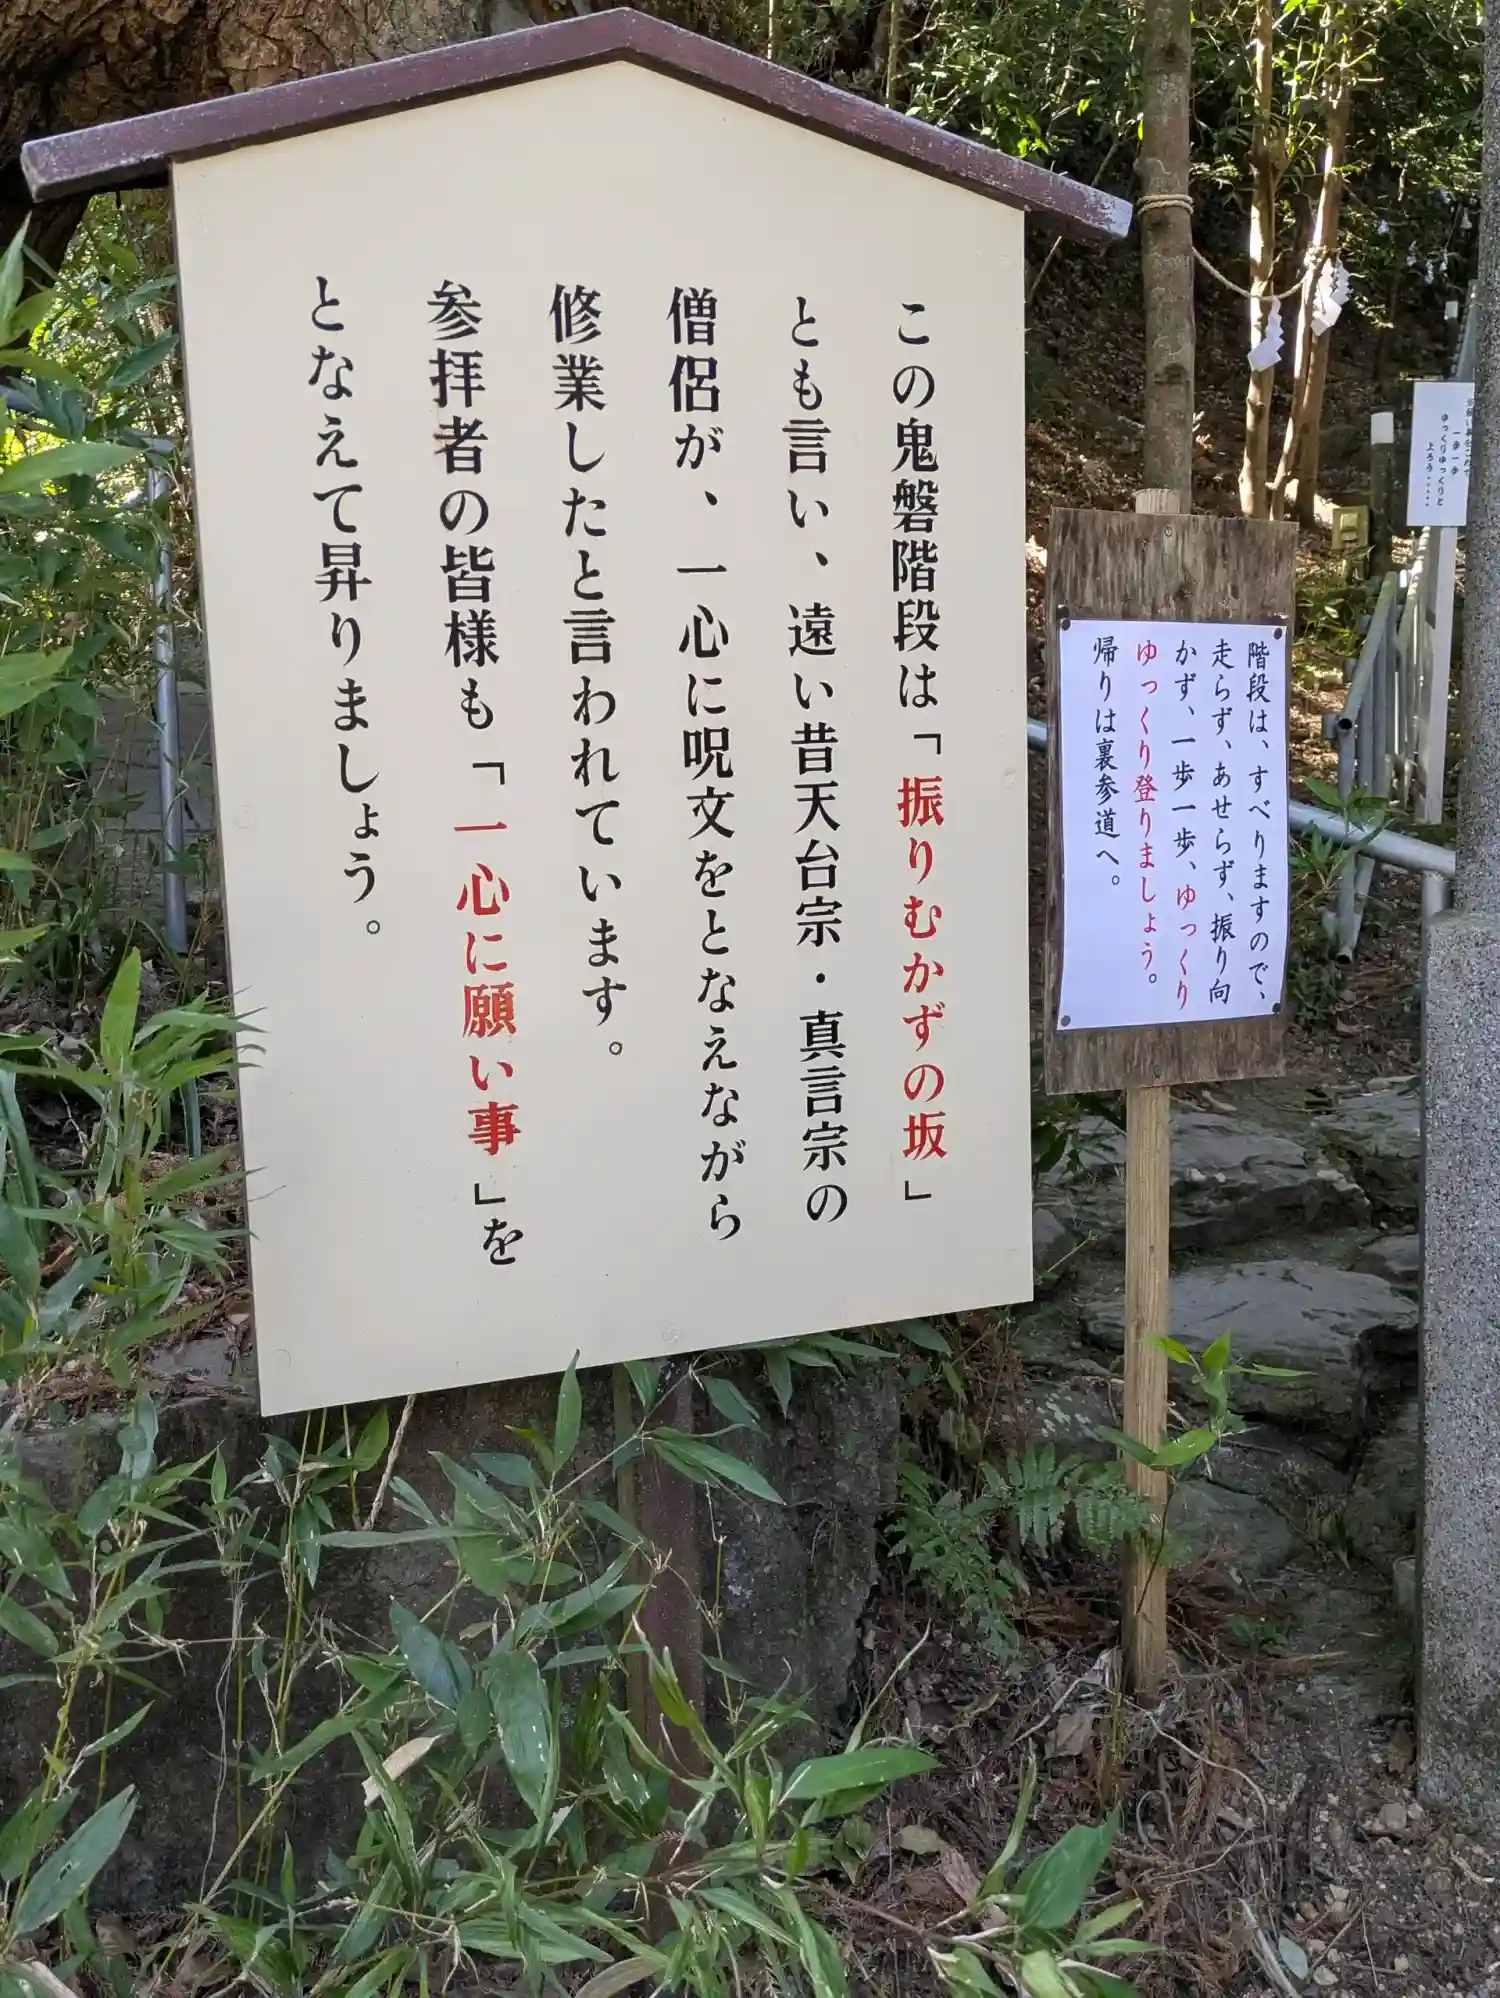 この鬼磐階段は「振りむかずの坂」
とも言い、遠い昔天台宗・真言宗の
僧侶が、一心に呪文をとなえながら
修業したと言われています。
参拝者の皆様も「一心に願い事」を
となえて昇りましょう。
階段は、すべりますので、
走らず、あせらず、振り向
かず、一歩一歩、ゆっくり
ゆっくり登りましょう。
帰りは裏参道へ。
一歩一歩
ゆっくりゆっくりと
上ろう……